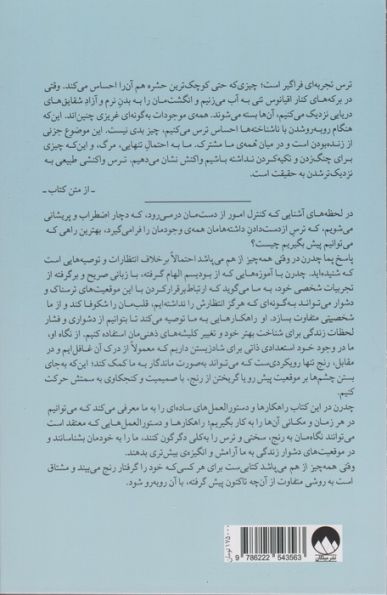 ترس تجربه‌ای فراگیر است؛ چیزی‌که حتی کوچک‌ترین حشره هم آن‌را احساس می‌کند. وقتی
در برکه‌های کنار اقیانوس تنی به آب می‌زنیم و انگشت‌مان را به بدنِ نرم و آزادِ شقایق‌های
دریایی نزدیک می‌کنیم، آن‌ها بسته می‌شوند. همه‌ی موجودات به‌گونه‌ای غریزی چنین‌اند. این‌که
هنگام روبه‌روشدن با ناشناخته‌ها احساس ترس می‌کنیم، چیز بدی نیست. این موضوع جزئی
از زنده‌بودن است و در میان همه‌ی ما مشترک. ما به احتمالِ تنهایی، مرگ، و این‌که چیزی
برای چنگ‌زدن و تکیه‌کردن نداشته باشیم واکنش نشان می‌دهیم. ترس واکنشی طبیعی به
نزدیک‌ترشدن به حقیقت است.
ـ از متن کتاب ـ
در لحظه‌های آشنایی که کنترل امور از دست‌مان درمی‌رود، که دچار اضطراب و پریشانی
می‌شویم، که ترسِ ازدست‌دادنِ داشته‌هامان همه‌ی وجودمان را فرامی‌گیرد، بهترین راهی که
می‌توانیم پیش بگیریم چیست؟
پاسخ پما چدرن در وقتی همه‌چیز از هم می‌پاشد احتمالاً برخلاف انتظارات و توصیه‌هایی است
که شنیده‌اید. چدرن با آموزه‌هایی که از بودیسم الهام گرفته، با زبانی صریح و برگرفته از
تجربیات شخصی خود، به ما می‌گوید که ارتباط‌برقرارکردن با این موقعیت‌های ترسناک و
دشوار می‌تواند به‌گونه‌ای که هرگز انتظارش را نداشته‌ایم، قلب‌مان را شکوفا کند و از ما
شخصیتی متفاوت بسازد. او راهکارهایی به ما توصیه می‌کند تا بتوانیم از دشواری و فشار
لحظات زندگی برای شناخت بهتر خود و تغییر کلیشه‌های ذهنی‌مان استفاده کنیم. از نگاه او،
ما در وجود خود استعدادی ذاتی برای شادزیستن داریم که معمولاً از درک آن غافل‌ایم و در
مقابل، رنج تنها رویکردی‌ست که می‌تواند به‌صورت ماندگار به ما کمک کند؛ این‌که به‌جای
بستن چشم‌ها بر موقعیت پیش رو یا گریختن از رنج، با صمیمیت و کنجکاوی به سمتش حرکت
کنیم.
چدرن در این کتاب راهکارها و دستورالعمل‌های ساده‌ای را به ما معرفی می‌کند که می‌توانیم
در هر زمان و مکانی آن‌ها را به کار بگیریم؛ راهکارها و دستورالعمل‌هایی که معتقد است
می‌توانند نگاه‌مان به رنج، سختی و ترس را به‌کلی دگرگون کنند، ما را به خودمان بشناسانند و
در موقعیت‌های دشوار زندگی به ما آرامش و انگیزه‌ی بیش‌تری بدهند.
وقتی همه‌چیز از هم می‌پاشد کتابی‌ست برای هر کسی‌که خود را گرفتار رنج می‌بیند و مشتاق
است به روشی متفاوت از آن‌چه تاکنون پیش گرفته، با آن روبه‌رو شود.
۱۷۵۰۰۰ تومان
9 786222 543563
نشر میلکان